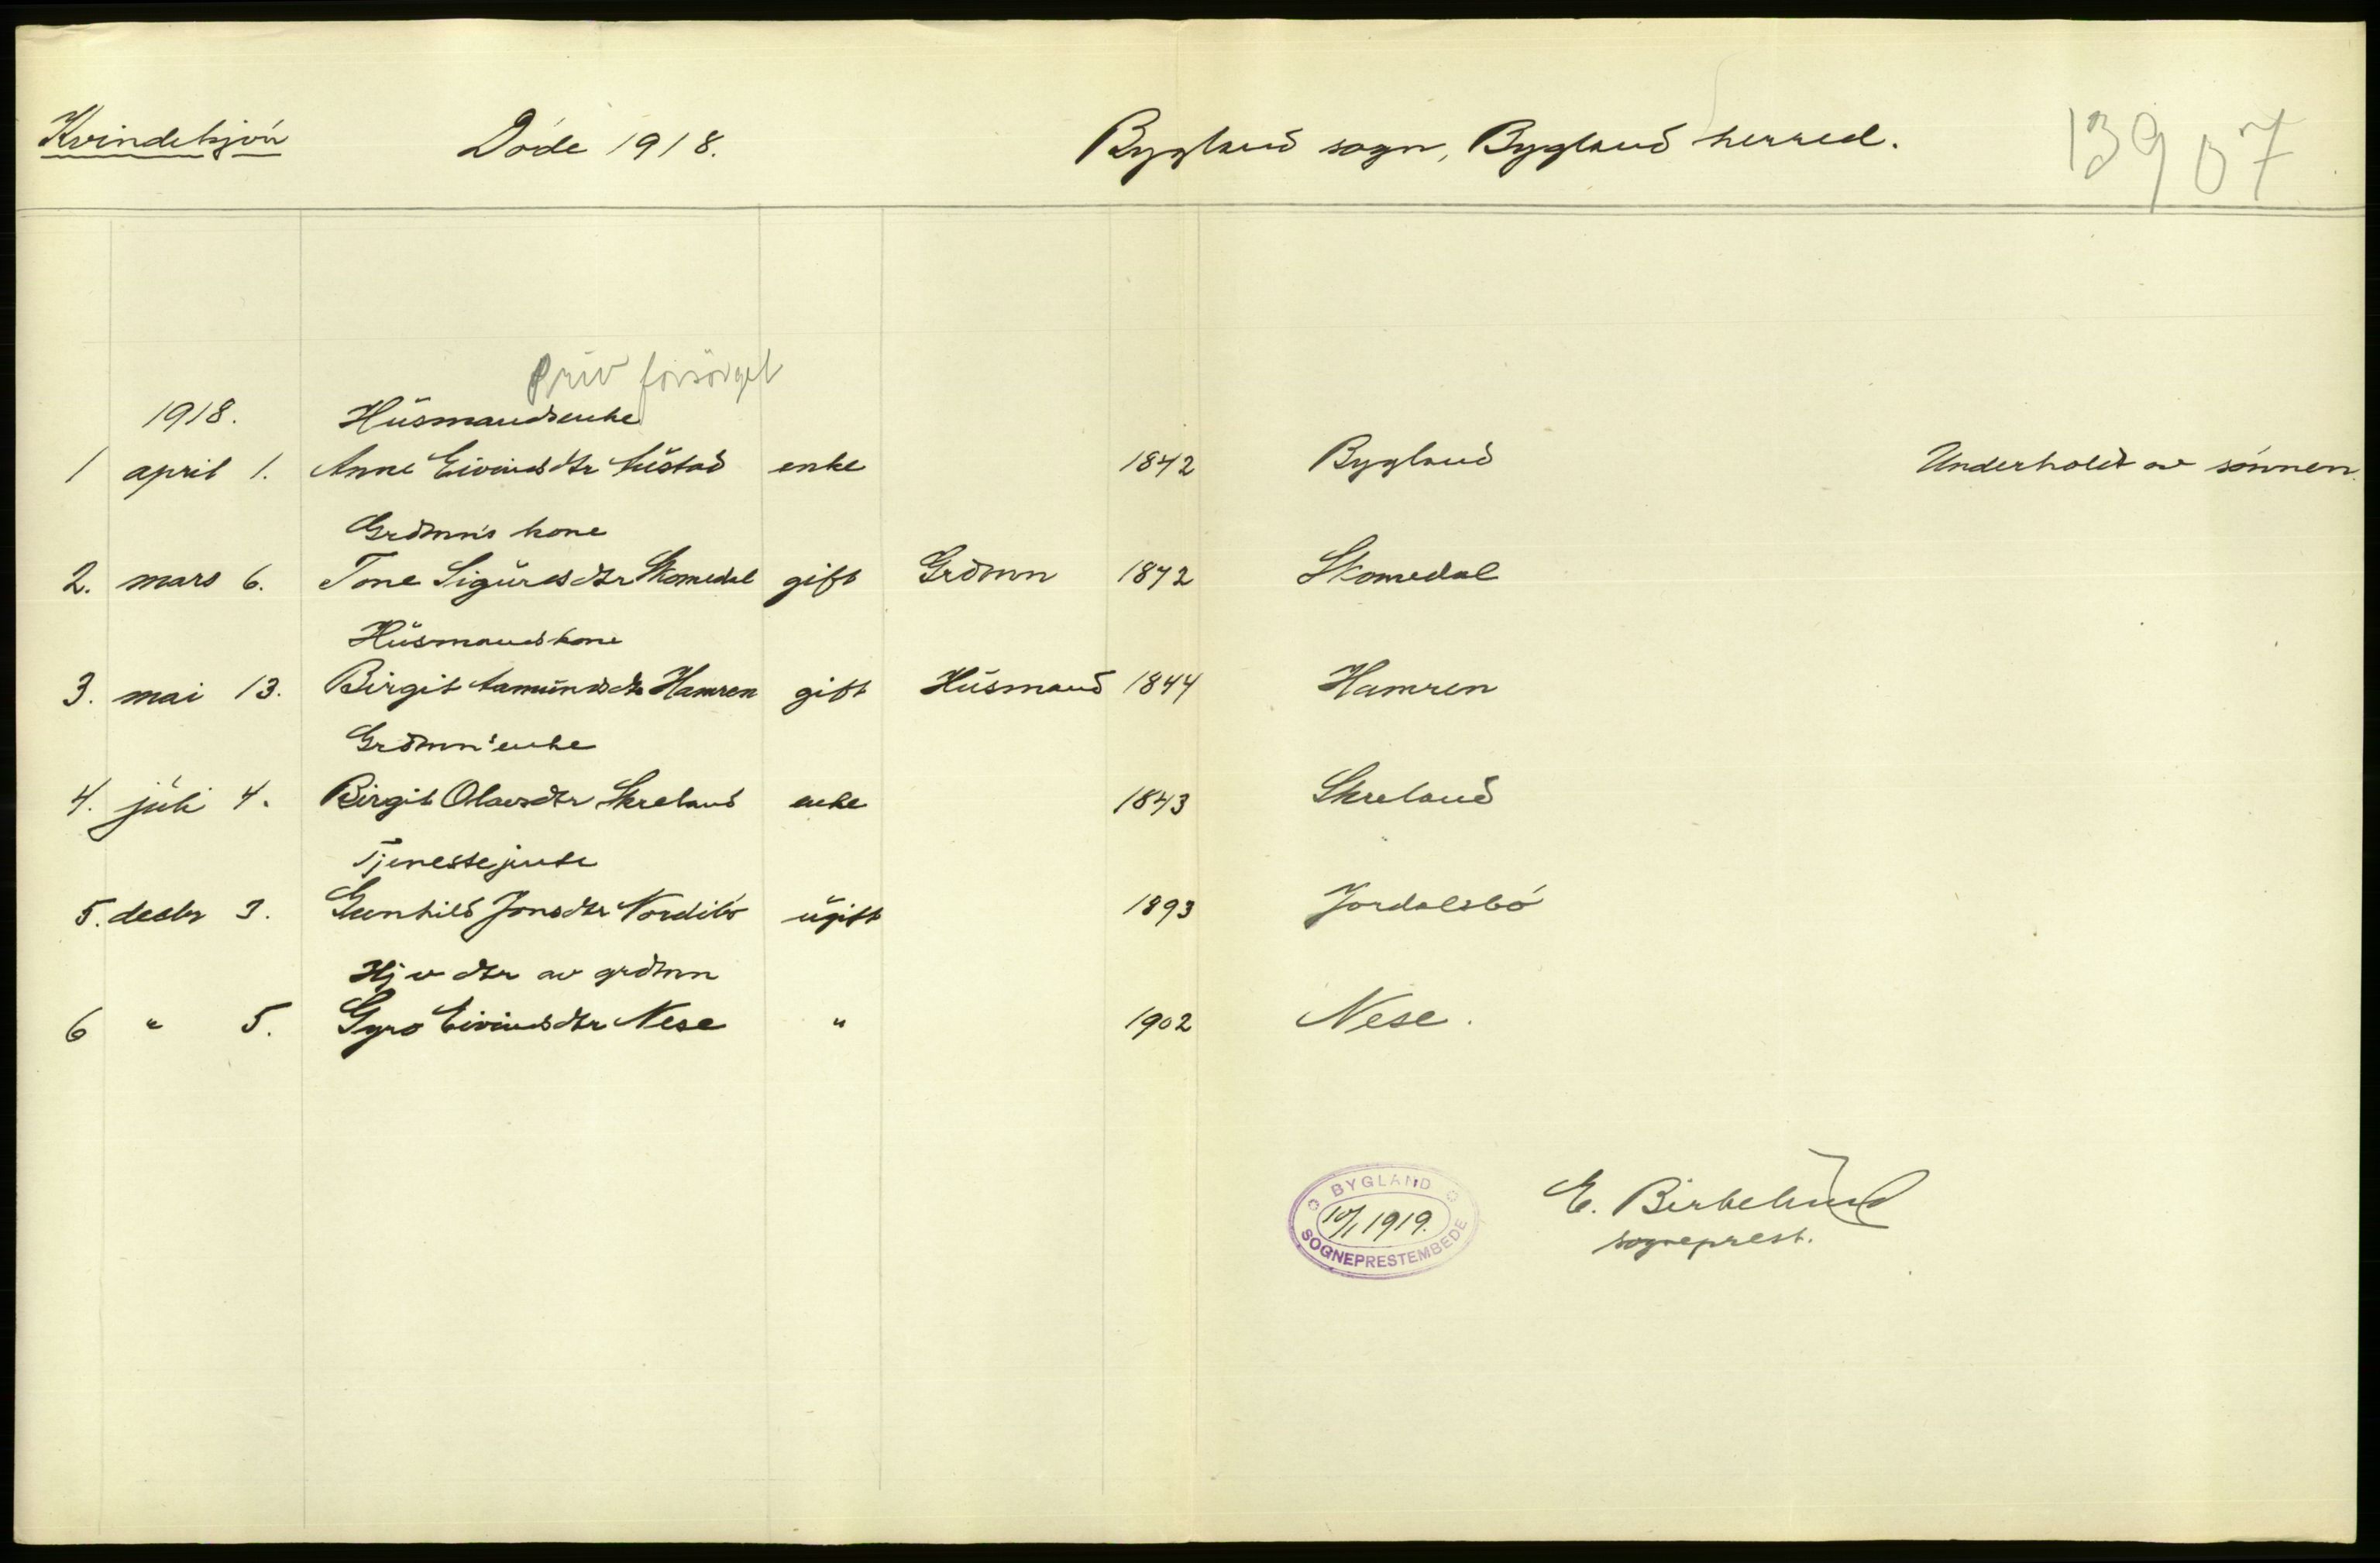 Kvindekjøn Døde 1918. Bygland sogn, Bygland herred. 13907
priv forsørget
1918. Husmandsenke
1 april 1. Anne Eivindsdtr enke 1842 Bygland Underholdt av sønnen.
Grdmn's kone
2. mars 6. Tone Sigurdsdtr Skomedal gift Grdmn 1842 Skomedal
Husmandskone
3. mai 13. Birgit Aamundsdtr Hamren gift Husmand 1844 Hamren
Grdmn's enke
4. juli 4. Birgit Olavsdtr Skreland enke 1843 Skreland
Tjenestejente
5. decbr 3. Gunhild Jonsdtr ugift 1893 Jordalsbø
Hjv dtr av grdmn
6 " 5. Gyro Eivindsdtr Nese " 1902 Nese.
BYGLAND
10/1 1919.
SOGNEPRESTEMBEDE
E. Birkelund
sogneprest.